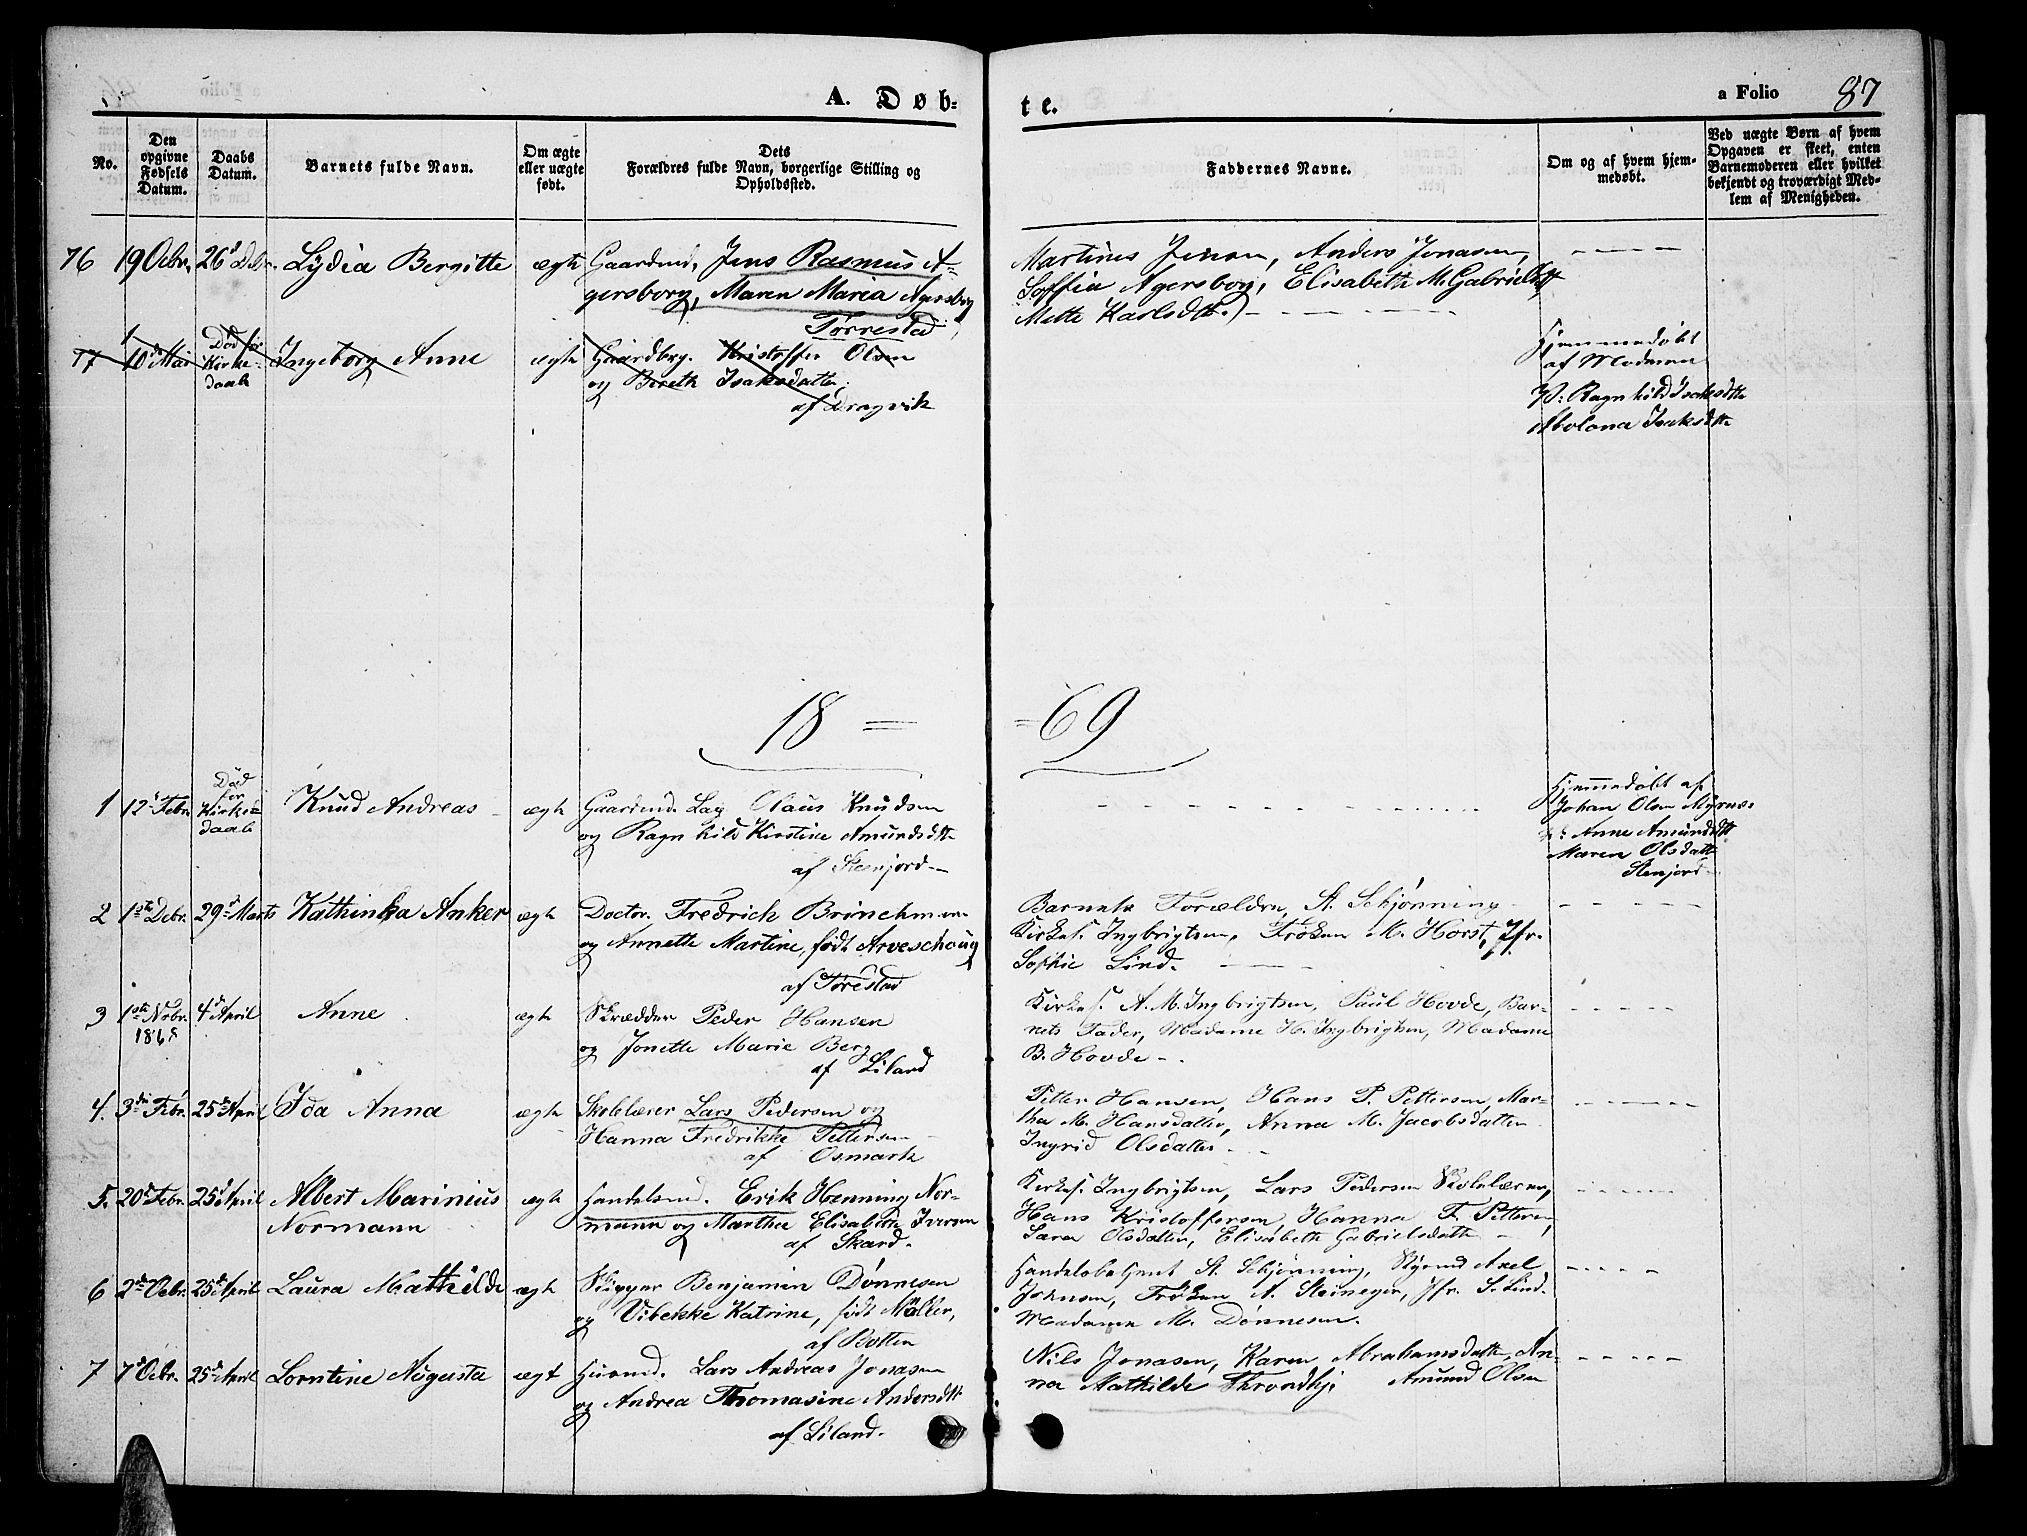 A. Døb=
te.
a Folio 87
No.
Den opgivne Fødsels Datum.
Daabs Datum.
Barnets fulde Navn.
Om ægte eller uægte født.
Dets Forældres fulde Navn, borgerlige Stilling og Opholdssted.
Faddernes Navne.
Om og af hvem hjemmedøbt.
Ved uægte Børn af hvem Opgaven er skeet, enten Barnemoderen eller hvilket bekjendt og troværdigt Medlem af Menigheden.
76 19 Octbr. 26d Debr. Lydia Bergitte ægte Gaardmd. Jens Rasmus A=
gersborg, Maren Maria Agersborg
Torrestad
Martinus Jenson, Anders Jonasen,
Soffia Agersborg, Elisabeth M. Gabrielsdtt
Mette Karlsdtt.
77 10d Mai Död før Kirke=
daab Ingeborg Anne ægte Gaardbrg. Kristoffer Olsen
og Bereth Isaksdatter,
af Dragvik
Hjemmedøbt
af Moderen
V: Ragnhild Isaksdtte
Abolona Isaksdtte
18 =
= 69
1 12te Febr. Död
før
Kirke=
daab Knud Andreas ægte Gaardmd. Lag Olaus Knudsen
og Ragnhild Kirstine Amundsdtt
af Steenjord
Hjemmedøbt af
Johan Olsen Myrnes
V: Anne Amundsdtt
Maren Olsdatt
Stenjord
2 1ste Debr. 29d Marts Kathinka Anker ægte Doctor. Fredrich Brinchmann
og Annette Martine, født Arveschoug
af Torestad
Barnets Forældre, A. Schjønning
Kirkes. Ingbrigtsen, Frøken M. Horst, Jfr.
Sophie Lind.
3 1ste Nobr. 4d April Anne ægte Skrædder Peder Hansen
1868
og Jonette Marie Berg
af Liland
Kirkes. A. M. Ingbrigtsen, Paul Hovde, Bar=
nets Fader, Madame H. Ingbrigtsen, Madame
B. Hovde
4. 3die Febr. 25d April Ida Anna ægte Skolelærer Lars Pedersen og
Hanna Fredrikke Pettersen
af Osmark
Petter Hansen, Hans P. Pettersen, Mar=
tha M. Hansdatter, Anna M. Jacobsdatter
Ingrid Olsdatter
5. 20d Febr. 25d April Albert Marinius ægte Handelsmd. Erik Henning Nor=
Normann
mann og Martha Elisabeth Iversen
af Skard.
Kirkes. Ingbrigtsen, Lars Pedersen Skolelærer,
Hans Kristoffersen, Hanna F. Pettersen,
Saren Olsdatter, Elisabeth Gabrielsdatte
6 2d Octbr. 25d April Laura Mathilde ægte Skipper Benjamin Dønnesen
og Vibekke Katrine, født Møller,
af Botten
Handelsbetjent A. Schjønning, Styrmd Axel
Johnsen, Frøken A. Steineger, Jfr. S. Lind.
Madamen M. Dønnesen.
7 7d Octbr. 25d April Lorntine Augusta ægt Husmd. Lars Andreas Jonasen
og Andrea Thomasine Andersdtt
af Liland.
Nils Jonasen, Karen Abrahamsdatte, An=
na Mathilde Throndhj: Amund Olsen